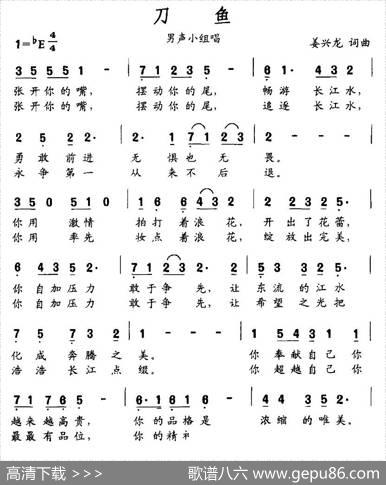 刀 鱼
男声小组唱
1=♭E 4/4
姜兴龙 词曲
3 5 5 5 5 1 - | 7 1 2 3 5 - | 6 1· 4 3 2 |
张开你的嘴, 摆动你的尾, 畅游 长江水,
张开你的嘴, 摆动你的尾, 追逐 长江水,
2 5 5 2 - | 2 1· 7 1 2 1 | 2 - - - |
勇敢前进 无 惧也无 畏。
永争第一 从 来不后 退。
3 5 0 5 1 0 | 7 1 2 3 5 - | 6 1 4 3 2 - |
你用 激情 拍打着浪 花, 开出了花蕾,
你用 率先 妆点着浪 花, 绽放出完美,
6 4 3 5 2· | 7 1 2 3 5 2 | 1 0 4 3 5 2· |
你自加压力 敢于争 先,让 东流的江水
你自加压力 敢于争 先,让 希望之光把
7 5 7 3 2 | 1 - - - | 1 0 5 4 3 5 1 |
化成奔腾之 美。 你 奉献自己 你
浩浩长江点 缀。 你 超越自己 你
7 1 7 6 5 - | 1 0 6 1 6 1 2 | 4 4 3 5 2· |
越来越高贵, 你的品格是 浓缩的唯美。
最最有品位, 你的精神
高清下载 >>>
歌谱八六 www.gepu86.com